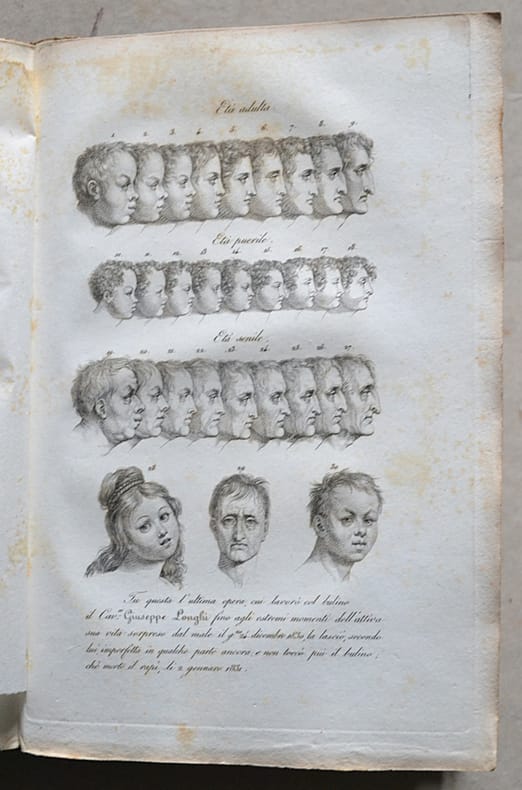 Età adulta.
1. 2. 3. 4. 5. 6. 7. 8. 9.
Età puerile.
11. 12. 13 14. 15. 16. 17. 18.
Età senile.
19. 20. 21. 22. 23. 24. 25. 26. 27.
28 29 30
Fu questa l'ultima opera, cui lavorò col bulino
il Cav.re Giuseppe Longhi fino agli estremi momenti dell'attiva
sua vita sorpreso dal male il g.no 24 dicembre 1830, la lasciò, secondo
lui imperfetta in qualche parte ancora; e non toccò più il bulino,
chè morte il rapì, li 2 gennaro 1831.